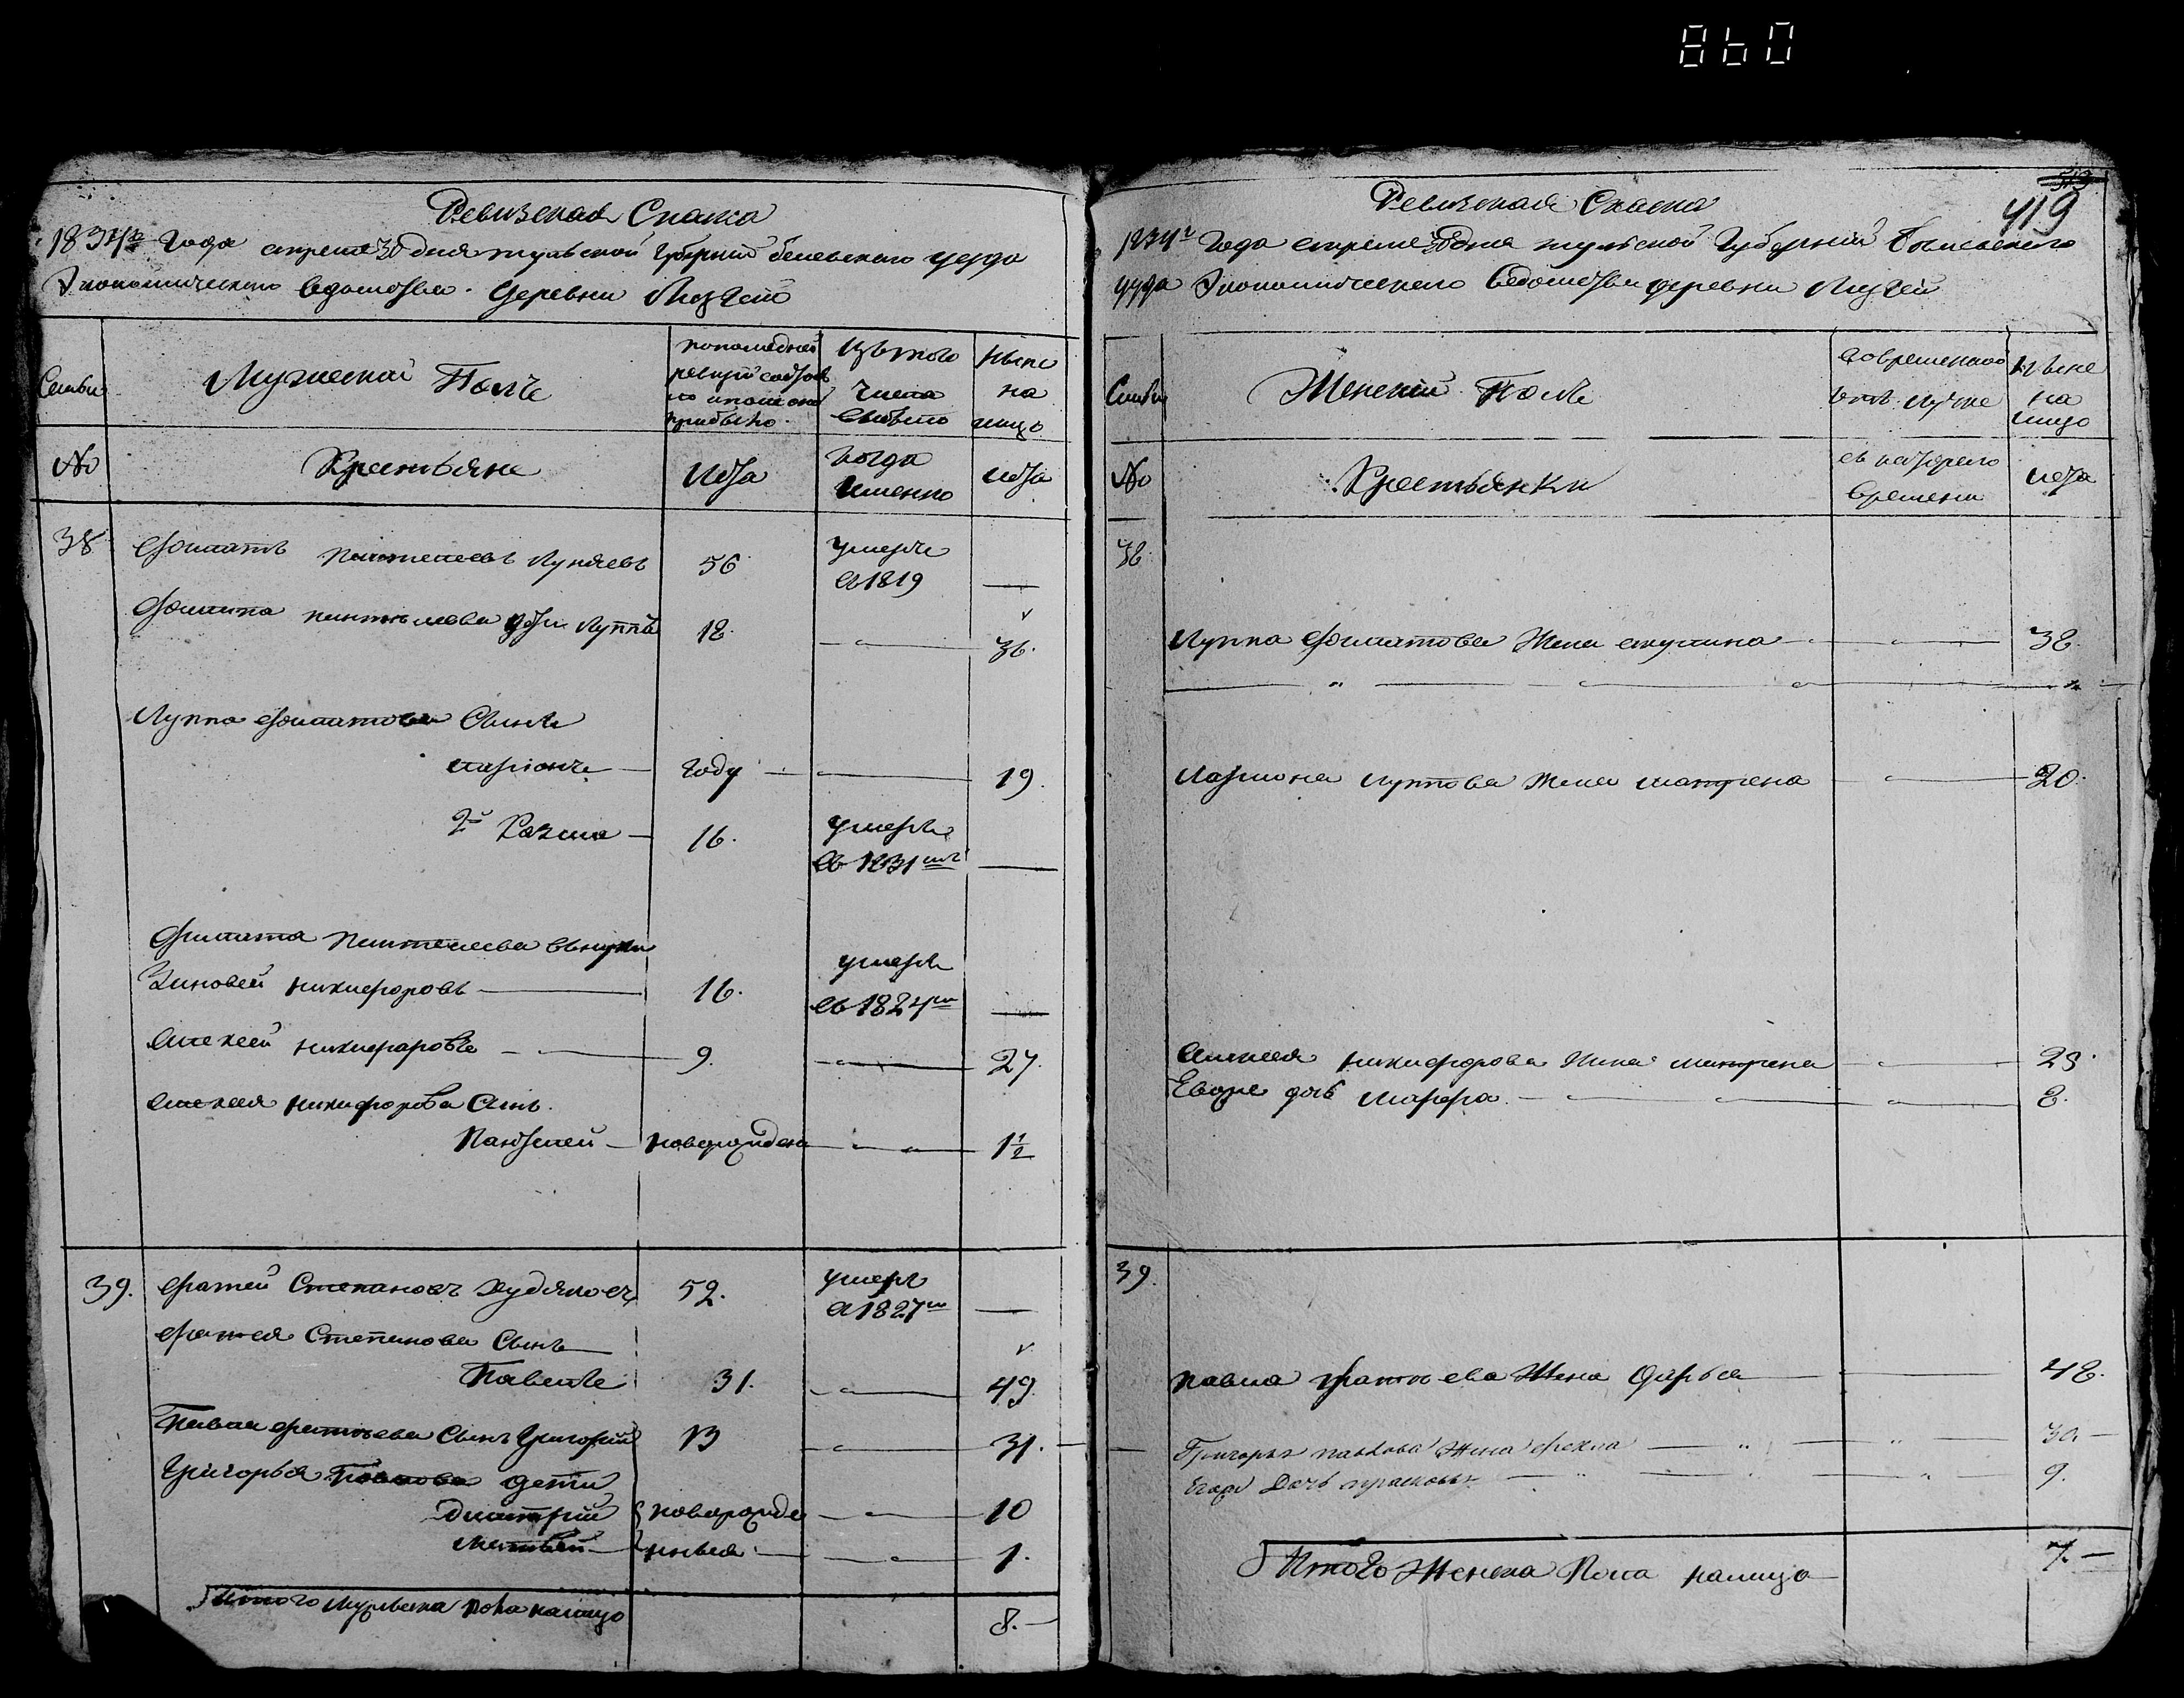 860
Ревизская Сказка
1834го Года апреля 30 дня тульской Губернии белевского уезда
Экономического ведомства. Деревни
Семьи
Мужеской Полъ
попоследней
ревизии состояло
и после оной
прибыло.
Изътого
числа
выбыло
Ныне
на
лицо
№
Крестьяне
Лета
когда
именно
лета
38
Филатъ Пантелеевъ Лукяевъ
56
умеръ
въ 1819
—
Филата пантелеева дети Луппъ
18.
36.
Луппа Филатова Сынъ
Ларионъ
году
19.
2й Козма
16.
умеръ
въ 1831мъ
—
Филата Пантелеева внуки
Зиновей никифоровъ
16.
умеръ
въ 1824м
—
Алексей никифаровъ
9.
27.
Алексея никифорова Сынъ.
Пантелей
новорожденъ
1 1/2
39.
Фатей Степановъ Худяковъ
52.
умеръ
в 1827м
—
Фатея Степанова Сынъ
Павелъ
31.
49
Павла фатеева Сынъ Григорий
13
31.
Григорья Павлова дети
Дмитрий
новорожде
10
Матвей
нные
1.
Итого Мужеска пола налицо
8.
513
419
Ревизская Сказка
1834г Года апреля 30 дня тульской Губернии белевского
уезда Экономического ведомства деревни
Семьи
Женский Полъ
вовременной
отлучке
Ныне
на
лицо
№
Крестьянки
съ которого
времени
лета
38.
Луппа Филатова Жена акулина
38.
Лариона луппова жена матрена
20.
Алексея никифорова жена матрена
28.
Евоже дочь марфа
8.
39.
павла фатеева Жена Дарья
48.
Григорья павлова жена фекла
30.
Егоже Дочь прасковья
9.
Итого Женска Пола налицо
7.